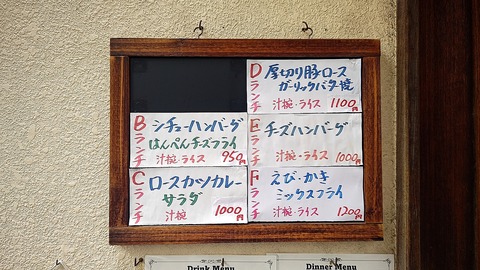 Dランチ
厚切り豚ロース
ガーリックバター焼
汁椀・ライス 1100円
Bランチ
シチューハンバーグ
はんぺんチーズフライ
汁椀・ライス 950円
Eランチ
チーズハンバーグ
汁椀・ライス 1000円
Cランチ
ロースカツカレー
サラダ
汁椀 1000円
Fランチ
えび・かき
ミックスフライ
汁椀・ライス 1200円
Drink Menu
Dinner Menu